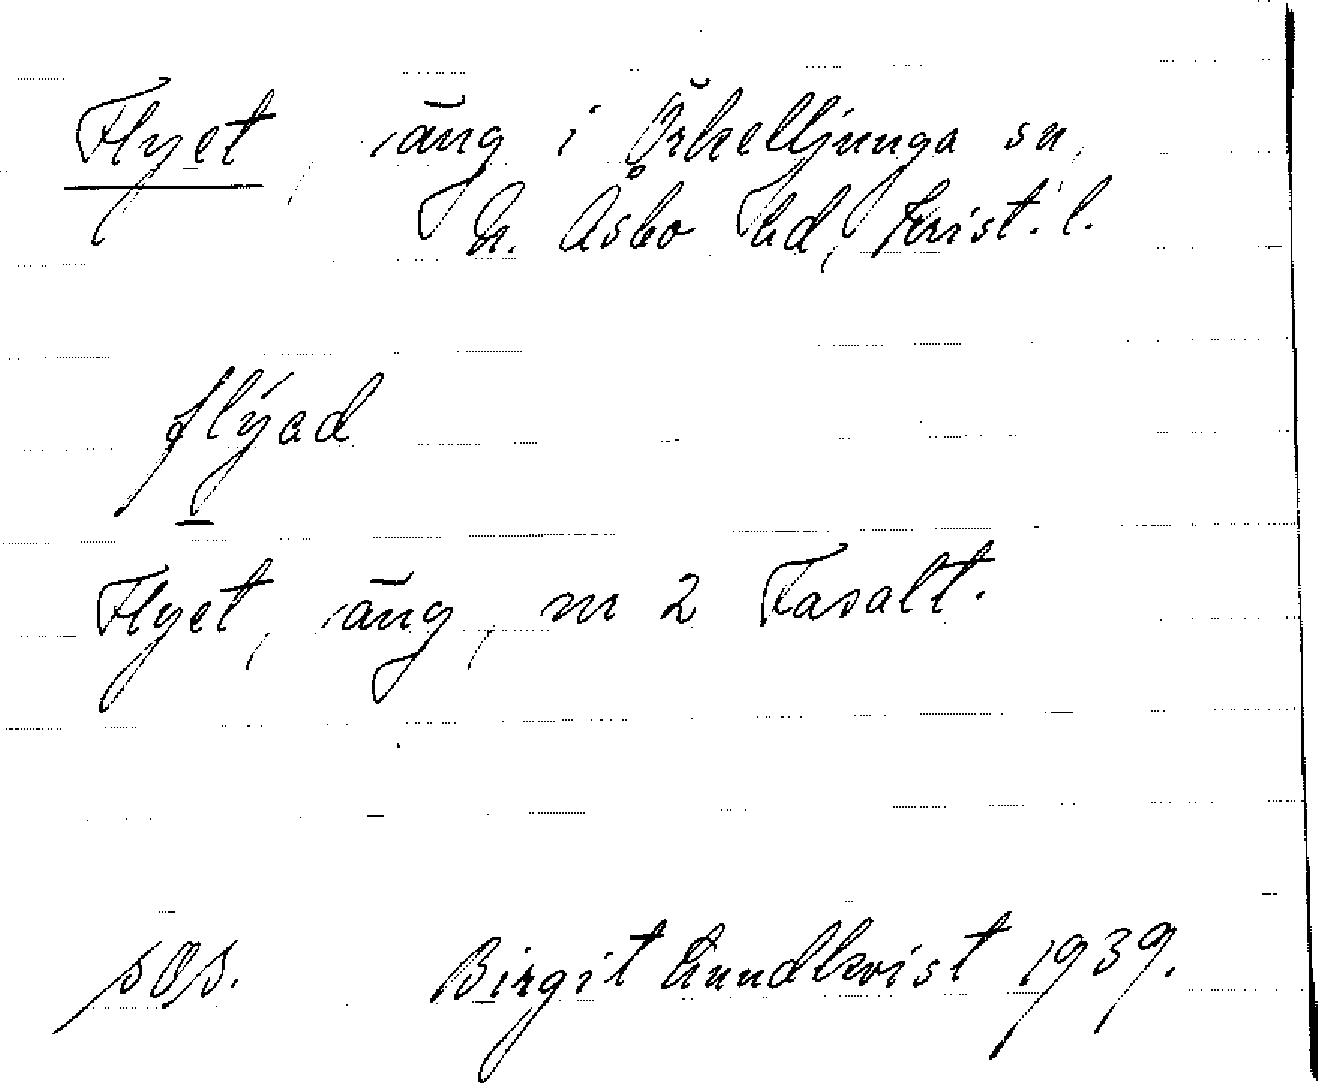 Flyet, äng i Örkelljunga sn,
N. Åsbo hd, Krist. l.
flýad
Flyet, äng, m 2 Fasalt.
Birgit Lundkvist 1939.